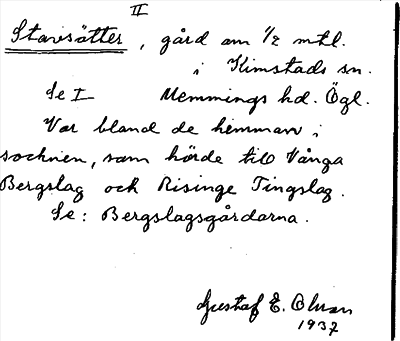 II
Stavsätter, gård om 1/2 mtl.
i Kimstads sn.
Se I Memmings hd. Ögl.
Var bland de hemman i
socknen, som hörde till Vånga
Bergslag och Risinge Tingslag.
Se: Bergslagsgårdarna.
Gustaf E.
1937